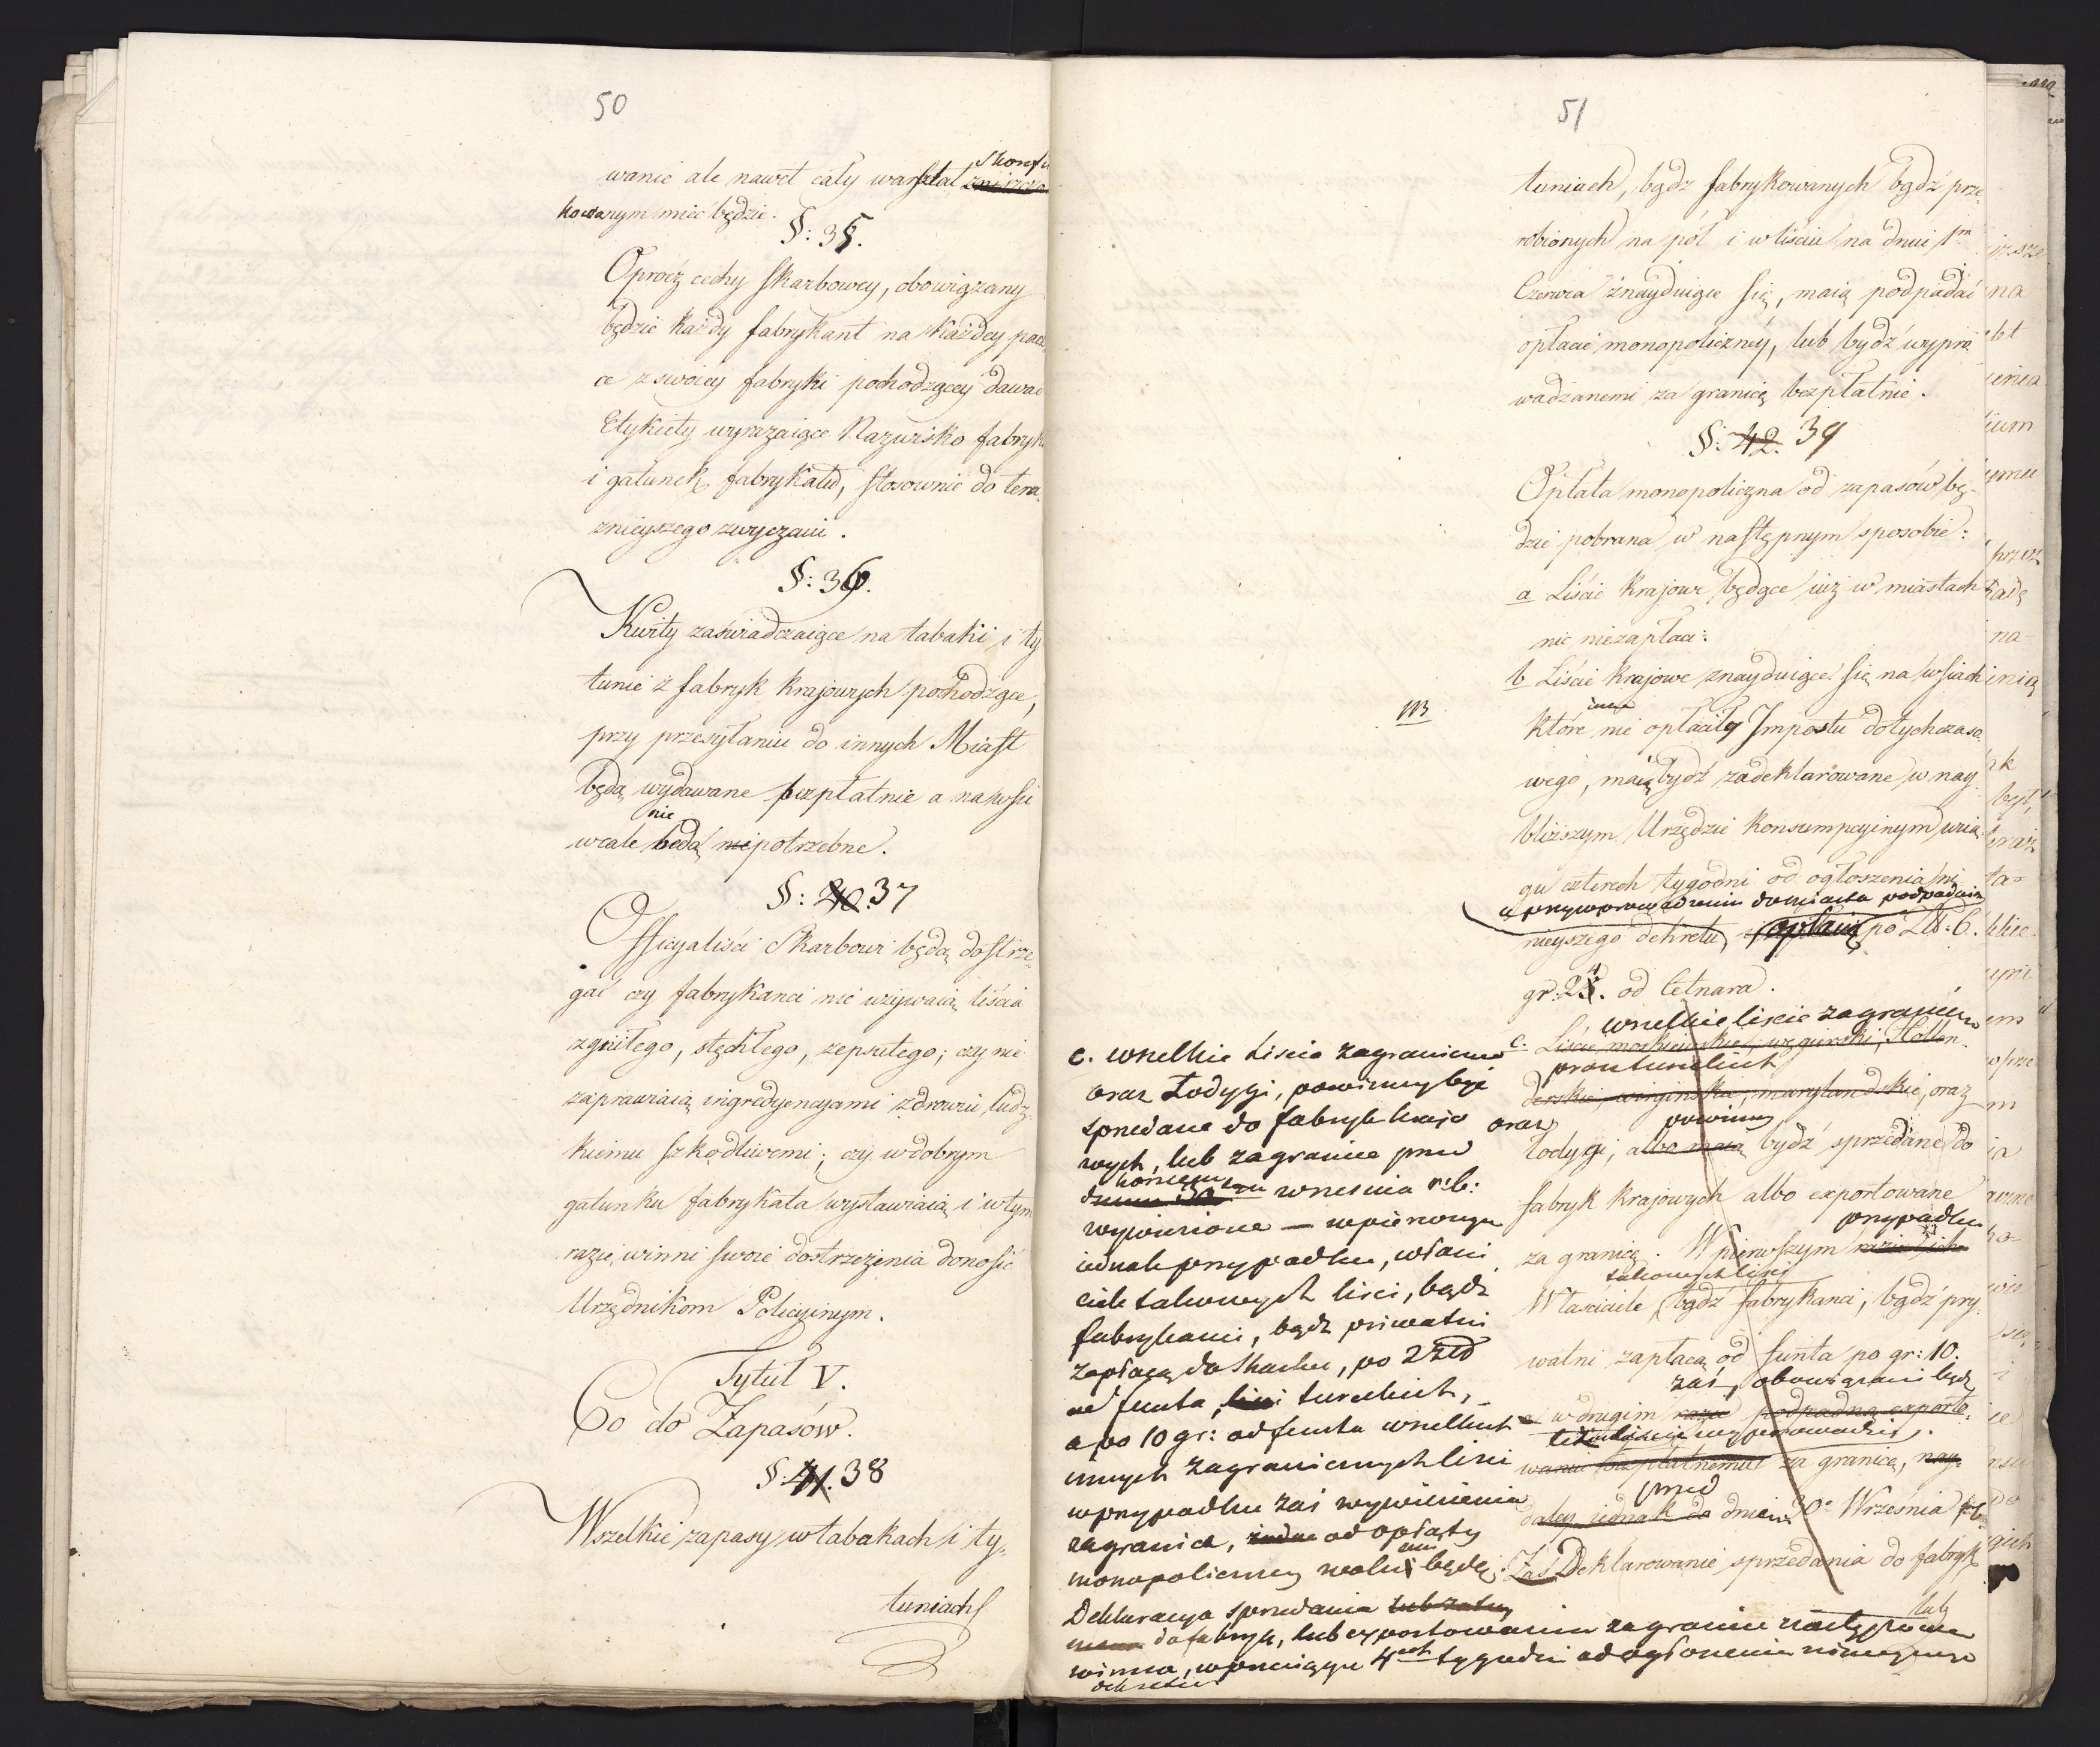 50
wanie ale nawet cały warsztat
kowanym mieć będzie.
§: 35.
Oprócz cechy skarbowey, obowiązany
będzie każdy fabrykant na każdey pacz
ce z swoiey fabryki pochodzącey dawać
Etykiety wyrażaiące Nazwisko fabryk
i gatunek fabrykatu, stosownie do tera
znieyszego zwyczaiu.
§: 36.
Kwity zaświadczaiące na tabaki i ty
tunie z fabryk krajowych pochodzące,
przy przesyłaniu do innych Miast
będą wydawane bezpłatnie a na wsi
nie
wcale będą potrzebne.
§: 40. 37
Officyaliści Skarbowi będą dostrze-
gać czy fabrykanci nie używaią liścia
zgniłego, stęchłego, zepsutego; czy nie
zaprawiaią ingredyencyami zdrowiu ludz-
kiemu szkodliwemi; czy w dobrym
gatunku fabrykata wystawiaią i w tym
razie, winni swoie dostrzeżenia donosić
Urzędnikom Policyinym.
Tytuł V.
Co do Zapasów.
§: 41. 38
Wszelkie zapasy w tabakach i ty-
tuniach
51
tuniach, bądź fabrykowanych bądź prze-
robionych na pół i w liściu na dniu 1m
Czerwca znayduiące się, maią podpadać
opłacie monopoliczney, lub bydź wypro
wadzanemi za granicę bezpłatnie.
§: 42. 39
Opłata monopoliczna od zapasów bę-
dzie pobrana w następnym sposobie:
a Liście krajowe będące iuż w miastach
nic niezapłaci:
b Liście krajowe znayduiące się na wsiach
które nie opłaciły Impostu dotychczaso
wego, maią bydź zadeklarowane w nay-
bliższym Urzędzie Konsumpcyinym w cią
gu czterech tygodni od ogłoszenia ni
a przy wprowadzeniu do miasta podpadaią
nieyszego dekretu, opłacie po Złt: 6.
gr: 24. od Cetnara.
wszelkie liście zagraniczne
c. Liście moskiewskie, węgierskie, Hollen-
derskie, wirgińskie, marylandskie, oraz
oraz powinny
łodygi, albo maią bydź sprzedane do
fabryk krajowych albo exportowane
przypadku
za granicę. W pierwszym razie ich
takowych liści
Właściciele, bądź fabrykanci, bądź pry-
watni zapłacą od funta po gr: 10.
zaś, obowiązani będą
a w drugim razie podpadną exporto-
waniu bezpłatnemu za granicę, nay-
przed
daley jednak do dnia 30o Września r b.
Zaś Deklarowanie sprzedania do fabryk
lub
c. wszelkie Liście zagraniczne
oraz Łodygi, powinny być
sprzedane do fabryk krajo
wych, lub zagranicę przed
końcem września r: b:
wywiezione — w pierwszym
iednak przypadku, właści
ciele takowych liści, bądź
fabrykanci, bądź prywatni
zapłacą do Skarbu, po 2 złt
od funta, liści tureckich,
a po 10 gr: od funta wszelkich
innych zagranicznych liści
w przypadku zaś wywiezienia
zagranicę, od opłaty
monopoliczney wolni będą.
Deklaracya sprzedania lub
do fabryk, lub exportowania zagranicę nastąpić po
winna, w przeciągu 4ech tygodni od ogłoszenia ninieyszego
dekretu